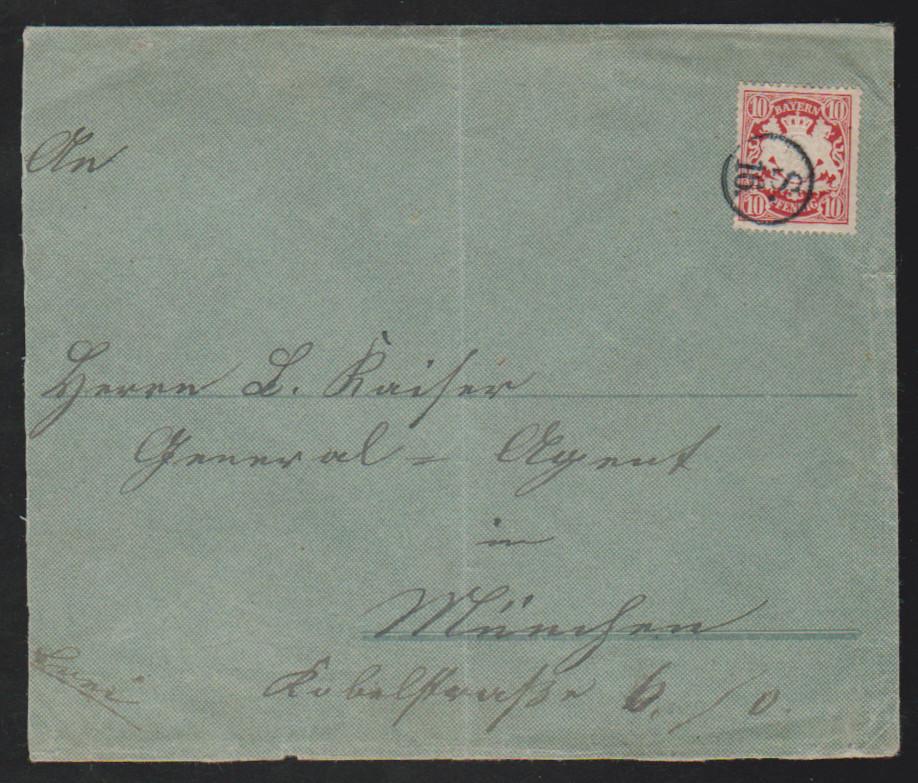 10 BAYERN 10
10 PFENNIG 10
16.
An
Herrn L. Kaiser
General-Agent
in
München
Kobelstraße 6./0.
frei